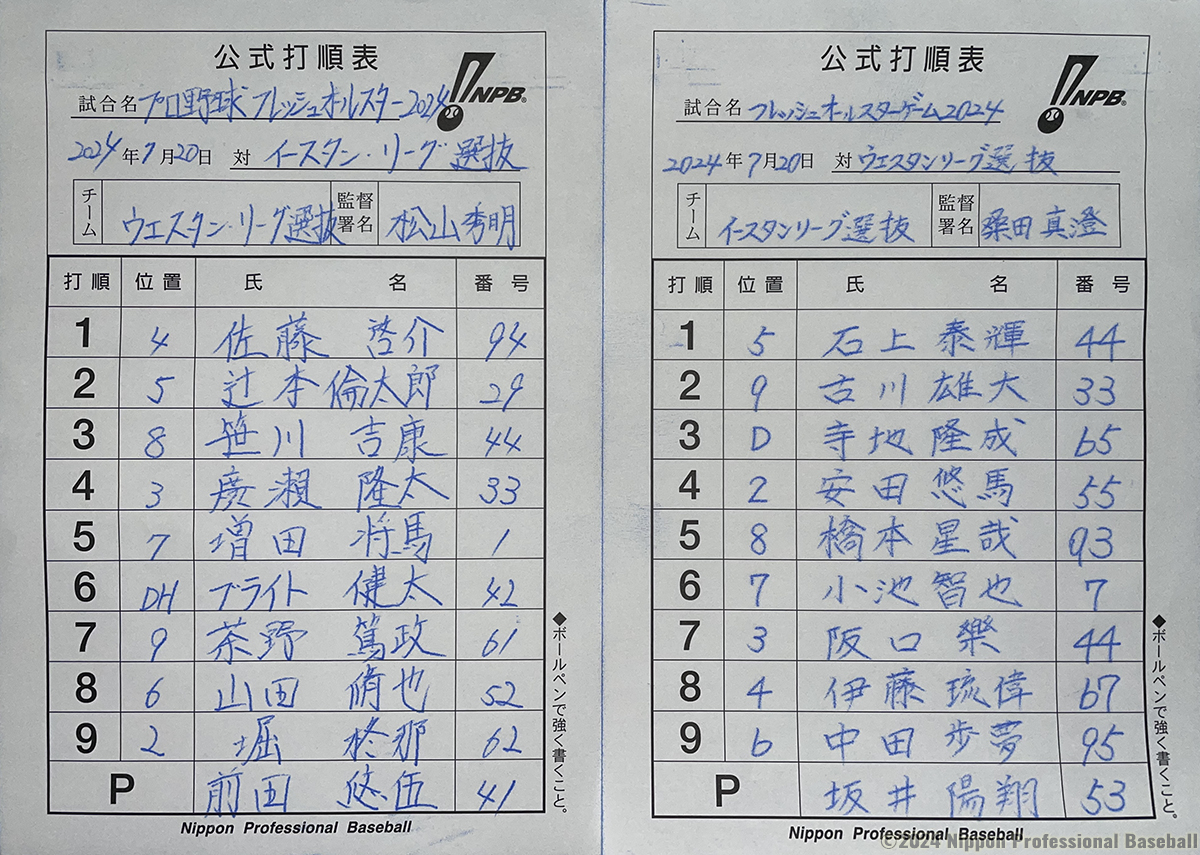 公式打順表
NPB
試合名 プロ野球フレッシュオールスター2024
2024年7月20日 対 イースタン・リーグ選抜
チーム ウエスタン・リーグ選抜 監督署名 松山秀明
打順 位置 氏名 番号
1 4 佐藤 啓介 94
2 5 辻本倫太郎 29
3 8 笹川 吉康 44
4 3 廣瀨 隆太 33
5 7 増田 将馬 1
6 DH ブライト 健太 42
7 9 茶野 篤政 61
8 6 山田 脩也 52
9 2 堀 柊那 62
P 前田 悠伍 41
◆ボールペンで強く書くこと。
Nippon Professional Baseball
公式打順表
NPB
試合名 フレッシュオールスターゲーム2024
2024年7月20日 対 ウエスタンリーグ選抜
チーム イースタンリーグ選抜 監督署名 桑田真澄
打順 位置 氏名 番号
1 5 石上泰輝 44
2 9 古川雄大 33
3 D 寺地隆成 65
4 2 安田悠馬 55
5 8 橋本星哉 93
6 7 小池智也 7
7 3 阪口樂 44
8 4 伊藤琉偉 67
9 6 中田歩夢 95
P 坂井陽翔 53
◆ボールペンで強く書くこと。
Nippon Professional Baseball
©2024 Nippon Professional Baseball